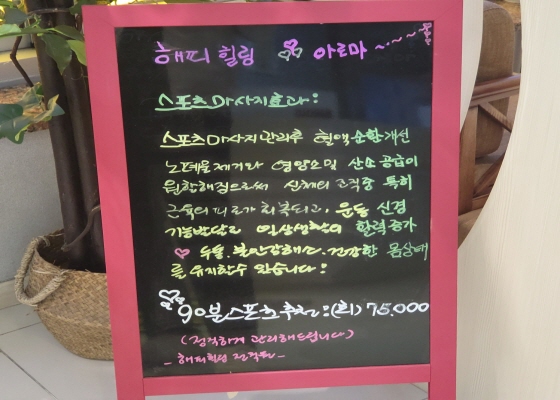 해피 힐링 아로마
스포츠마사지효과:
스포츠마사지관리후 혈액순환개선
노폐물제거와 영양소및 산소공급이
원할해짐으로써 신체의 조직중 특히
근육의피로가 회복되고, 운동 신경
기능발달로 일상생활의 활력증가
우울.불안감해소.건강한 몸상태
를유지할수 있습니다:
90분스포츠추천:(회) 75,000
(정직하게 관리해드립니다)
-해피힐링 전직원-